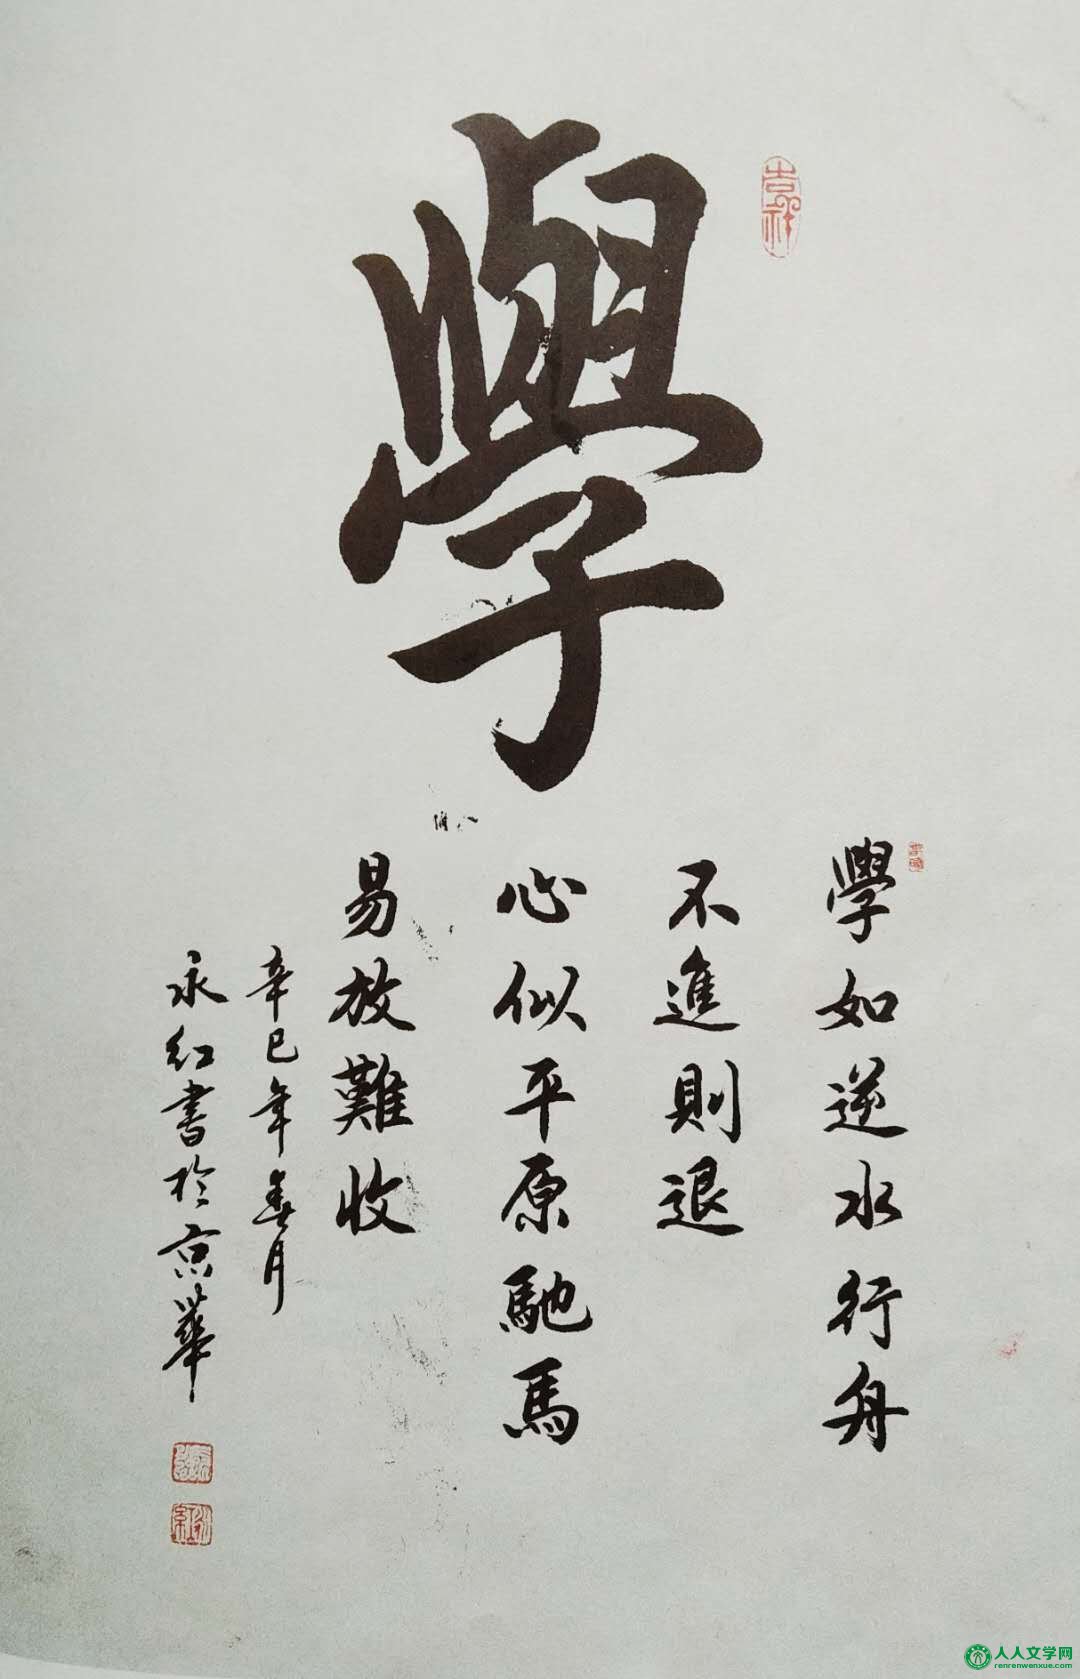 學
吉祥
學如逆水行舟
不進則退
心似平原馳馬
易放難收
辛巳年春月
永紅書於京華
人人文学网
renrenwenxue.com